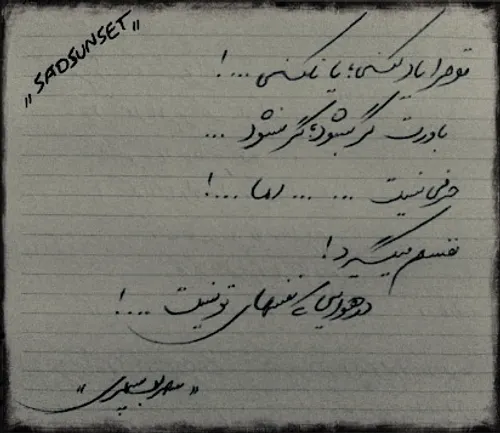 "SADSUNSET"
تو مرا یاد کنی؛ یا نکنی ...!
باورت گر بشود؛ گر نشود ...
حرفی نیست ... ... اما ...!
نفسم میگیرد!
در هوایی که نفسهای تو نیست ....!
"سهراب سپهری"